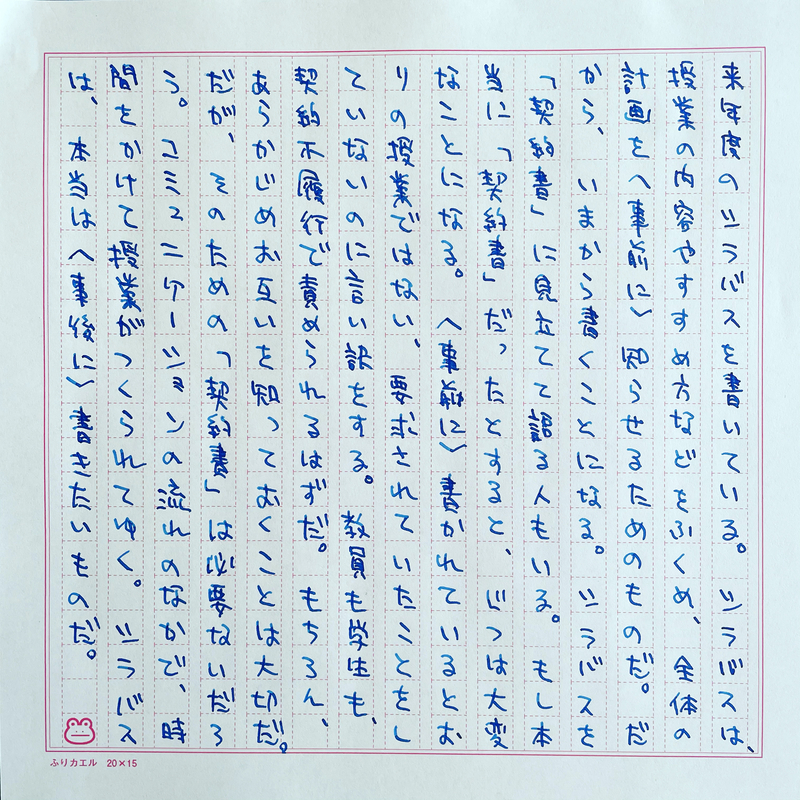 来年度のシラバスを書いている。 シラバスは、
授業の内容やすすめ方などをふくめ、全体の
計画を〈事前に〉知らせるためのものだ。だ
から、いまから書くことになる。シラバスを
「契約書」に見立てて語る人もいる。もし本
当に「契約書」だったとすると、じつは大変
なことになる。〈事前に〉書かれているとお
りの授業ではない、要求されていたことをし
ていないのに言い訳をする。教員も学生も、
契約不履行で責められるはずだ。もちろん、
あらかじめお互いを知っておくことは大切だ。
だが、そのための「契約書」は必要ないだろ
う。コミュニケーションの流れのなかで、時
間をかけて授業がつくられてゆく。シラバス
は、本当は〈事後に〉書きたいものだ。
ふりカエル 20×15